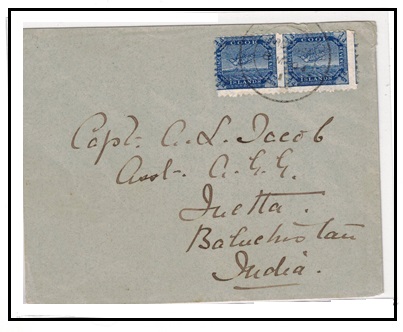 COOK COOK
ISLANDS ISLANDS
Capt. A. L. Jacob
Asst. A. G. G.
Quetta.
Baluchistan
India.